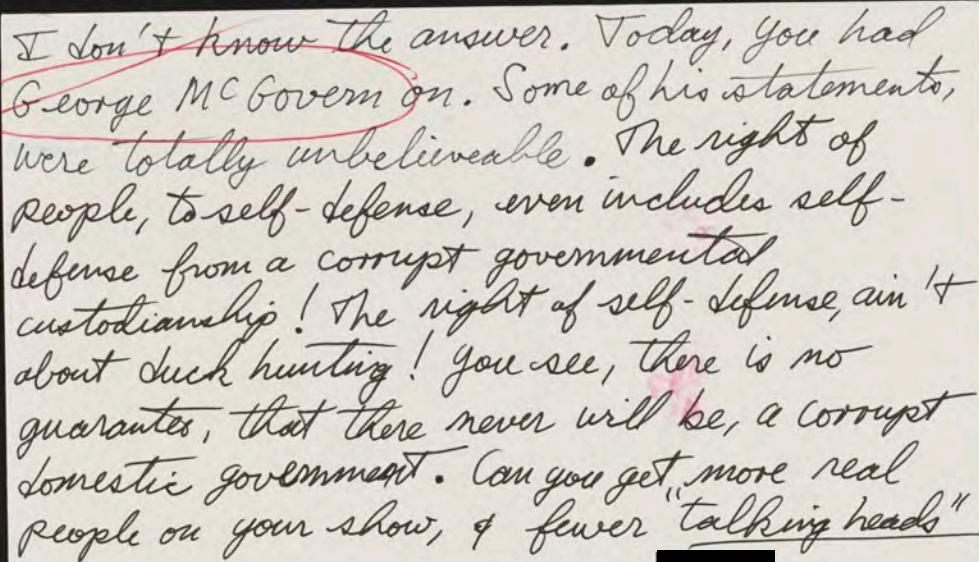 I don't know the answer. Today, you had
George McGovern on. Some of his statements,
were totally unbelieveable. The right of
people, to self-defense, even includes self-
defense from a corrupt governmental
custodianship! The right of self-defense, ain't
about duck hunting! You see, there is no
guarantee, that there never will be, a corrupt
domestic government. Can you get, more real
people on your show, & fewer "talking heads"